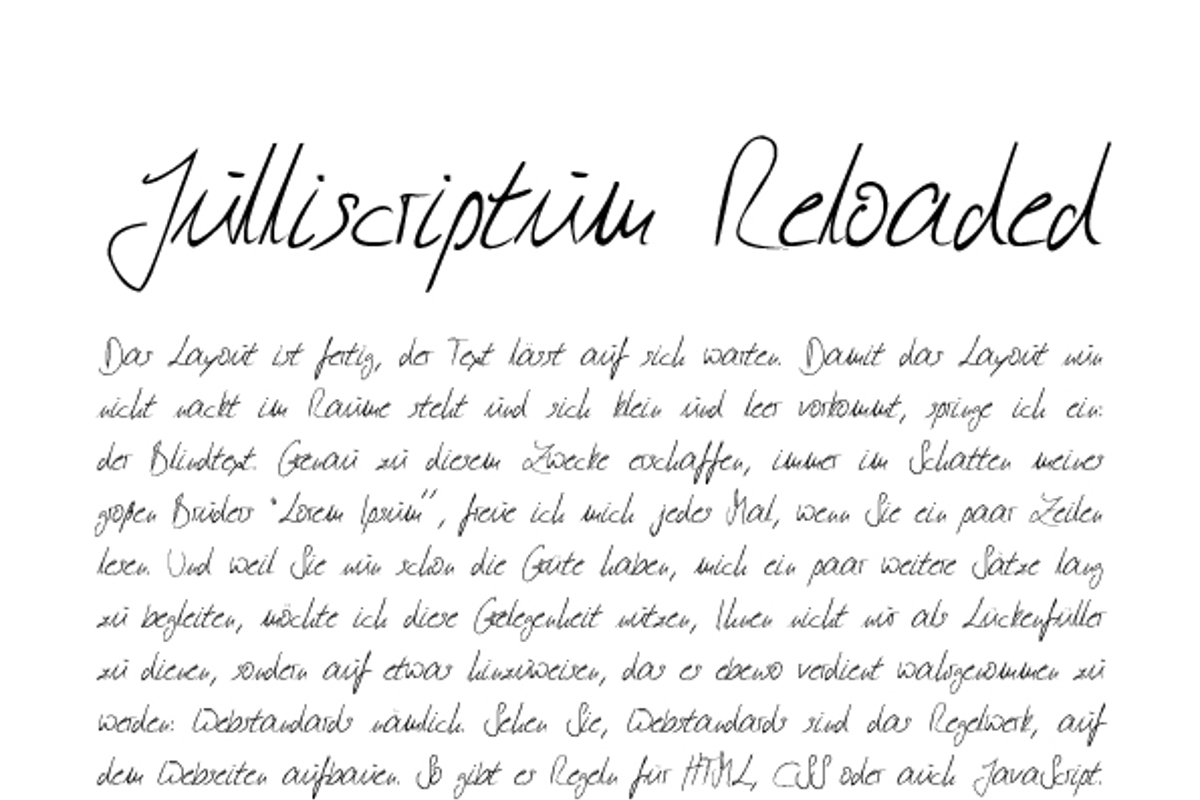 Julliscriptum Reloaded
Das Layout ist fertig, der Text lässt auf sich warten. Damit das Layout nun
nicht nackt im Raume steht und sich klein und leer vorkommt, springe ich ein:
der Blindtext. Genau zu diesem Zwecke erschaffen, immer im Schatten meines
großen Bruders "Lorem Ipsum", freue ich mich jedes Mal, wenn Sie ein paar Zeilen
lesen. Und weil Sie nun schon die Güte haben, mich ein paar weitere Sätze lang
zu begleiten, möchte ich diese Gelegenheit nutzen, Ihnen nicht nur als Lückenfüller
zu dienen, sondern auf etwas hinzuweisen, das es ebenso verdient wahrgenommen zu
werden: Webstandards nämlich. Sehen Sie, Webstandards sind das Regelwerk, auf
dem Webseiten aufbauen. So gibt es Regeln für HTML, CSS oder auch JavaScript.